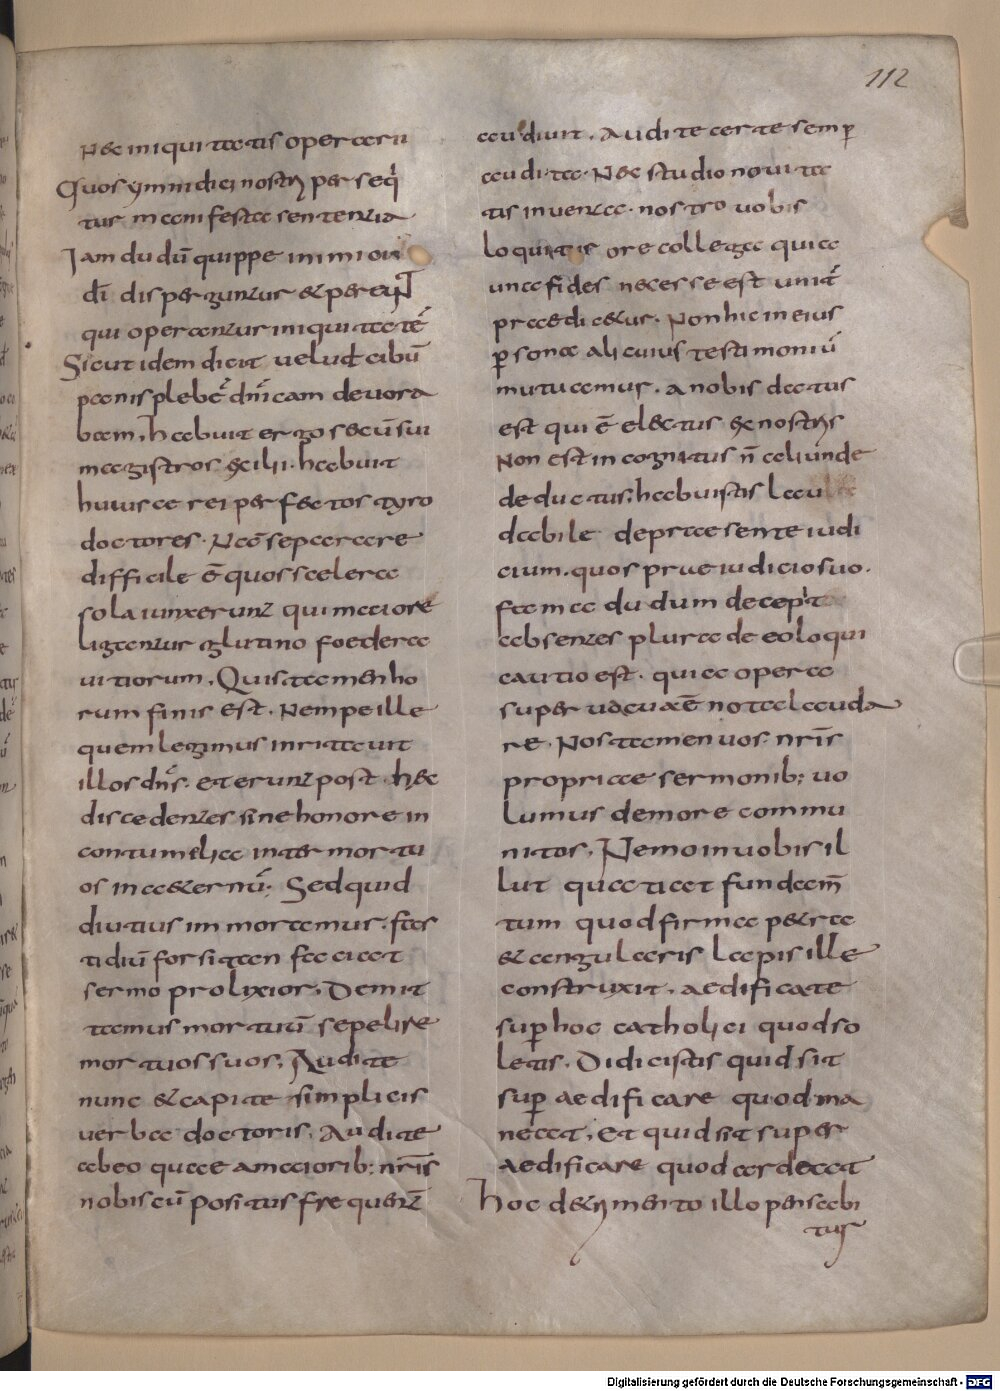 112
nec iniquitatis operarii
Quos ymnidici nostri perseq̃
tur manifesta sententia
Iam dudū quippe inimici
dī disperguntur & pereunt
qui operantur iniquitatē
Sicut idem dicit velud cibū
panis plebē dn̄icam devora
bam, habuit ergo secū sui
magistros exilii. habuit
huiusce rei perfectos tyro
doctores. Nec̄ separare
difficile ē quos scelera
sola iunxerunt qui maiore
ligantur glutino foedera
vitiorum. Quis tamen ho
rum finis est. Nempe ille
quem legimus inritavit
illos dn̄s. et erunt post hęc
discedentes sine honore in
contumelia inter mortu
os in aeternū. Sed quid
diutius immoramur. fas
tidiū forsitan faciat
sermo prolyxior. Demit
tamus mortuū sepelire
mortuos suos; Audite
nunc & capite simplicis
verba doctoris. Audite
abeo quae a maiorib; nr̄is
nobiscū positus frequent̄
audivit. Audite certe semp
audita. Nec studio novita
tis inventa. nostro vobis
loquitur ore collega quia
una fides necesse est unit̄
praedicetur. Non hic in eius
persona alicuius testimoniū
mutuamus. a nobis datus
est qui ē electus ex nostris
Non est incognitus n̄ aliunde
deductus; habuistis lau
dabile de praesente iudi
cium. quos prve iudicio suo.
fama dudum decepit
absentes plura de eo loqui
cautio est. quia opera
super vacuaē nota lauda
re. Nos tamen vos nr̄is
propriae sermonib; vo
lumus de more commu
nitos. Nemo in vobis il
lut quatiat fundam̄
tum quod firma petra
& angularis lapis ille
construxit. aedificate
sup hoc catholici quod so
letis. Didicistis quid sit
sup aedificare quod ma
neat. Et quid sit super
aedificare quod ardeat
hoc detrimento illo pensabi
tur
Digitalisierung gefördert durch die Deutsche Forschungsgemeinschaft - DFG